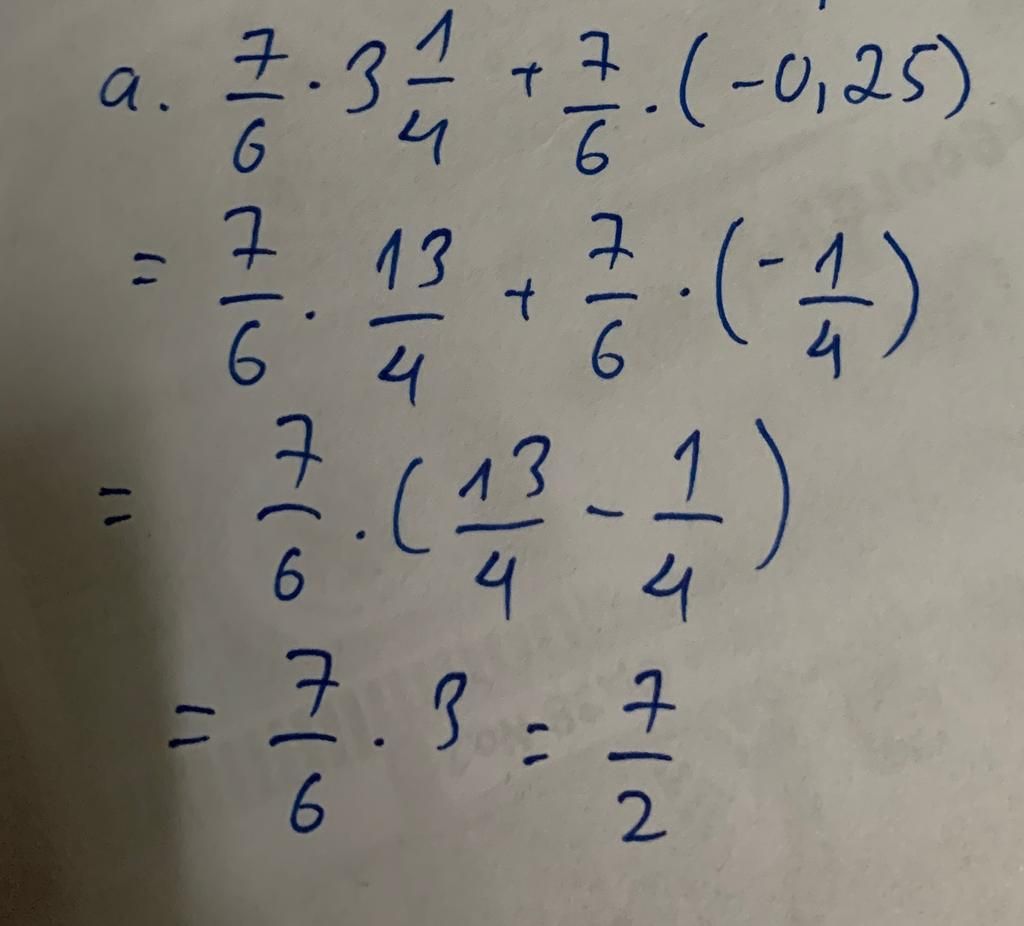 a. 7/6 · 3 1/4 + 7/6 · (-0,25)
= 7/6 · 13/4 + 7/6 · (-1/4)
= 7/6 · (13/4 - 1/4)
= 7/6 · 3 = 7/2